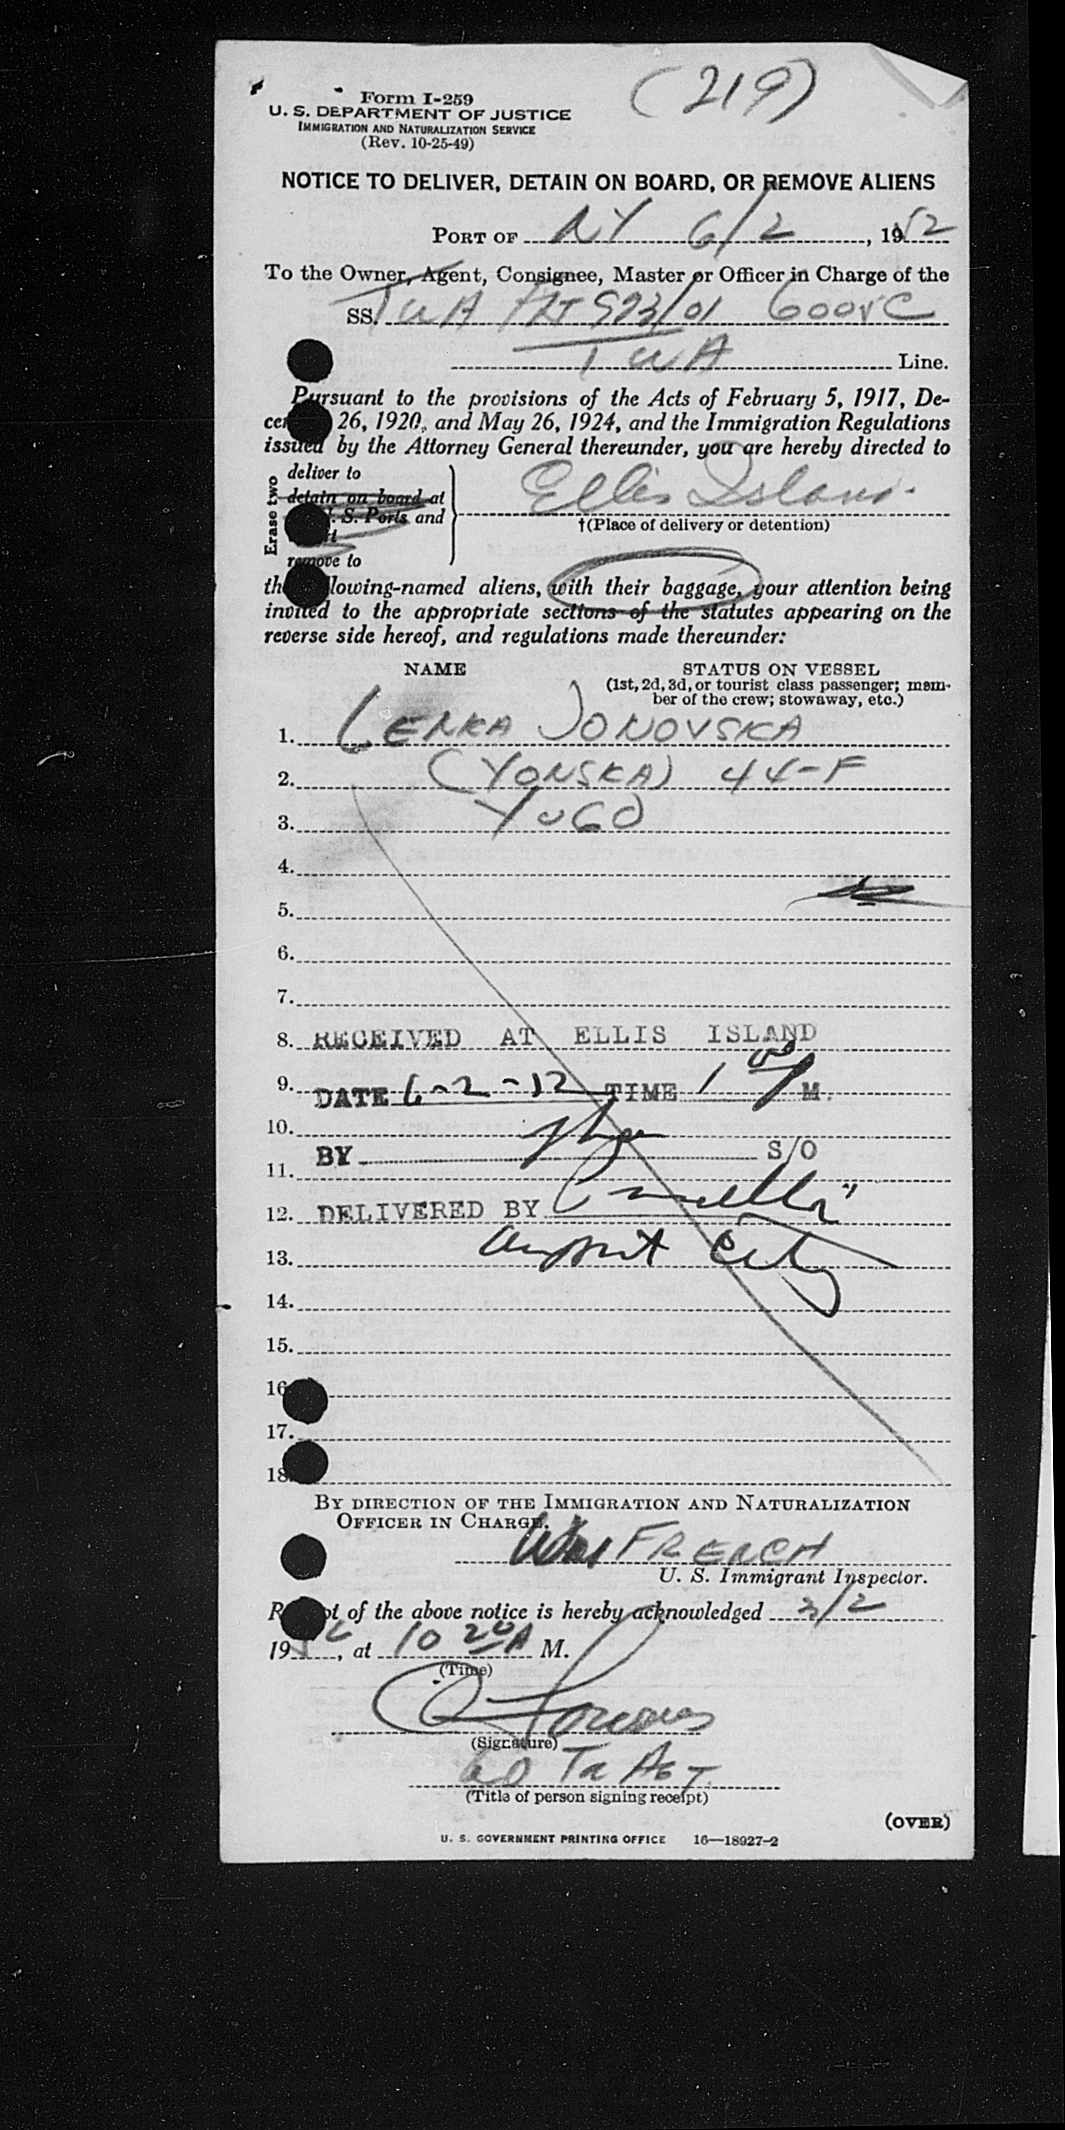 (219)
Form I-259
U. S. DEPARTMENT OF JUSTICE
IMMIGRATION AND NATURALIZATION SERVICE
(Rev. 10-25-49)
NOTICE TO DELIVER, DETAIN ON BOARD, OR REMOVE ALIENS
PORT OF NY 6/2, 1952
To the Owner, Agent, Consignee, Master or Officer in Charge of the
SS. TWA FLT 923/01
TWA Line.
Pursuant to the provisions of the Acts of February 5, 1917, De-
26, 1920, and May 26, 1924, and the Immigration Regulations
issued by the Attorney General thereunder, you are hereby directed to
Erase two
deliver to
detain on board at
S. Ports and
remove to
Ellis Island.
†(Place of delivery or detention)
lowing-named aliens, with their baggage, your attention being
invited to the appropriate sections of the statutes appearing on the
reverse side hereof, and regulations made thereunder:
NAME STATUS ON VESSEL
(1st, 2d, 3d, or tourist class passenger; mem-
ber of the crew; stowaway, etc.)
1. LENKA JONOVSKA
2. (YONSKA) 44-F
3. YUGO
4.
5.
6.
7.
8. RECEIVED AT ELLIS ISLAND
9. DATE 6-2-52 TIME 1 00 P M.
10.
BY S/O
11.
12. DELIVERED BY
13. airport City
14.
15.
16
17.
18
BY DIRECTION OF THE IMMIGRATION AND NATURALIZATION
OFFICER IN CHARGE.
Wm FRENCH
U. S. Immigrant Inspector.
of the above notice is hereby acknowledged
19, at 10 20 A M.
(Time)
(Signature)
AGT.
(Title of person signing receipt)
(OVER)
U. S. GOVERNMENT PRINTING OFFICE 16—18927-2